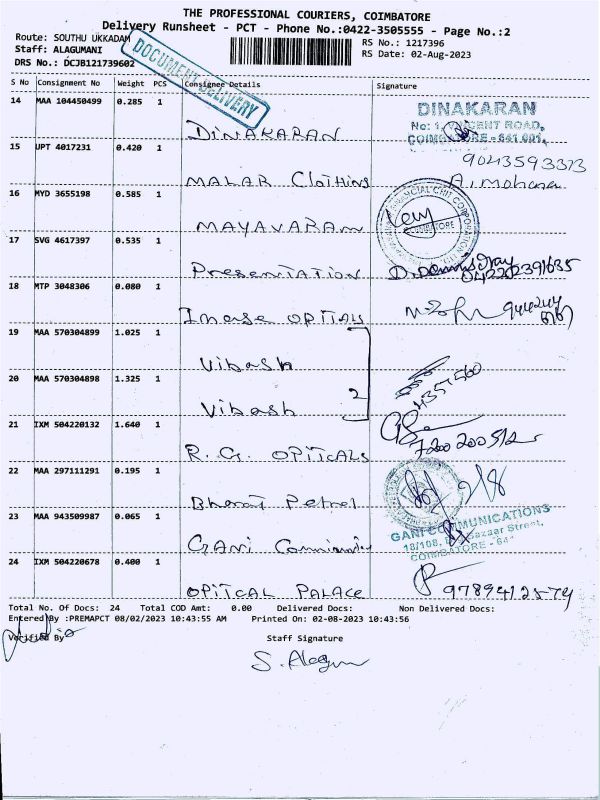 THE PROFESSIONAL COURIERS, COIMBATORE
Delivery Runsheet - PCT - Phone No.:0422-3505555 - Page No.:2
Route: SOUTHU UKKADAM
RS No.: 1217396
Staff: ALAGUMANI
RS Date: 02-Aug-2023
DRS No.: DCJB121739602
DOCUMENT DELIVERY
S No Consignment No Weight PCS Consignee Details Signature
14 MAA 104450499 0.285 1
DINAKARAN
DINAKARAN
COIMBATORE - 641 001.
15 UPT 4017231 0.420 1
MALAR Clothing
9043593373
A. Mohana
16 MYD 3655198 0.585 1
MAYAVARAM
17 SVG 4617397 0.535 1
Presentation
04222391635
18 MTP 3048306 0.080 1
OPTICALS
19 MAA 570304899 1.025 1
Vibash
20 MAA 570304898 1.325 1
Vibash
2
21 IXM 504220132 1.640 1
R.G. OPTICALS
22 MAA 297111291 0.195 1
Bharat Petrol
2/8
23 MAA 943509987 0.065 1
GANI
GANI COMMUNICATIONS
COIMBATORE - 641
24 IXM 504220678 0.400 1
OPITCAL PALACE
Total No. Of Docs: 24 Total COD Amt: 0.00 Delivered Docs: Non Delivered Docs:
Entered By :PREMAPCT 08/02/2023 10:43:55 AM Printed On: 02-08-2023 10:43:56
Verified By
Staff Signature